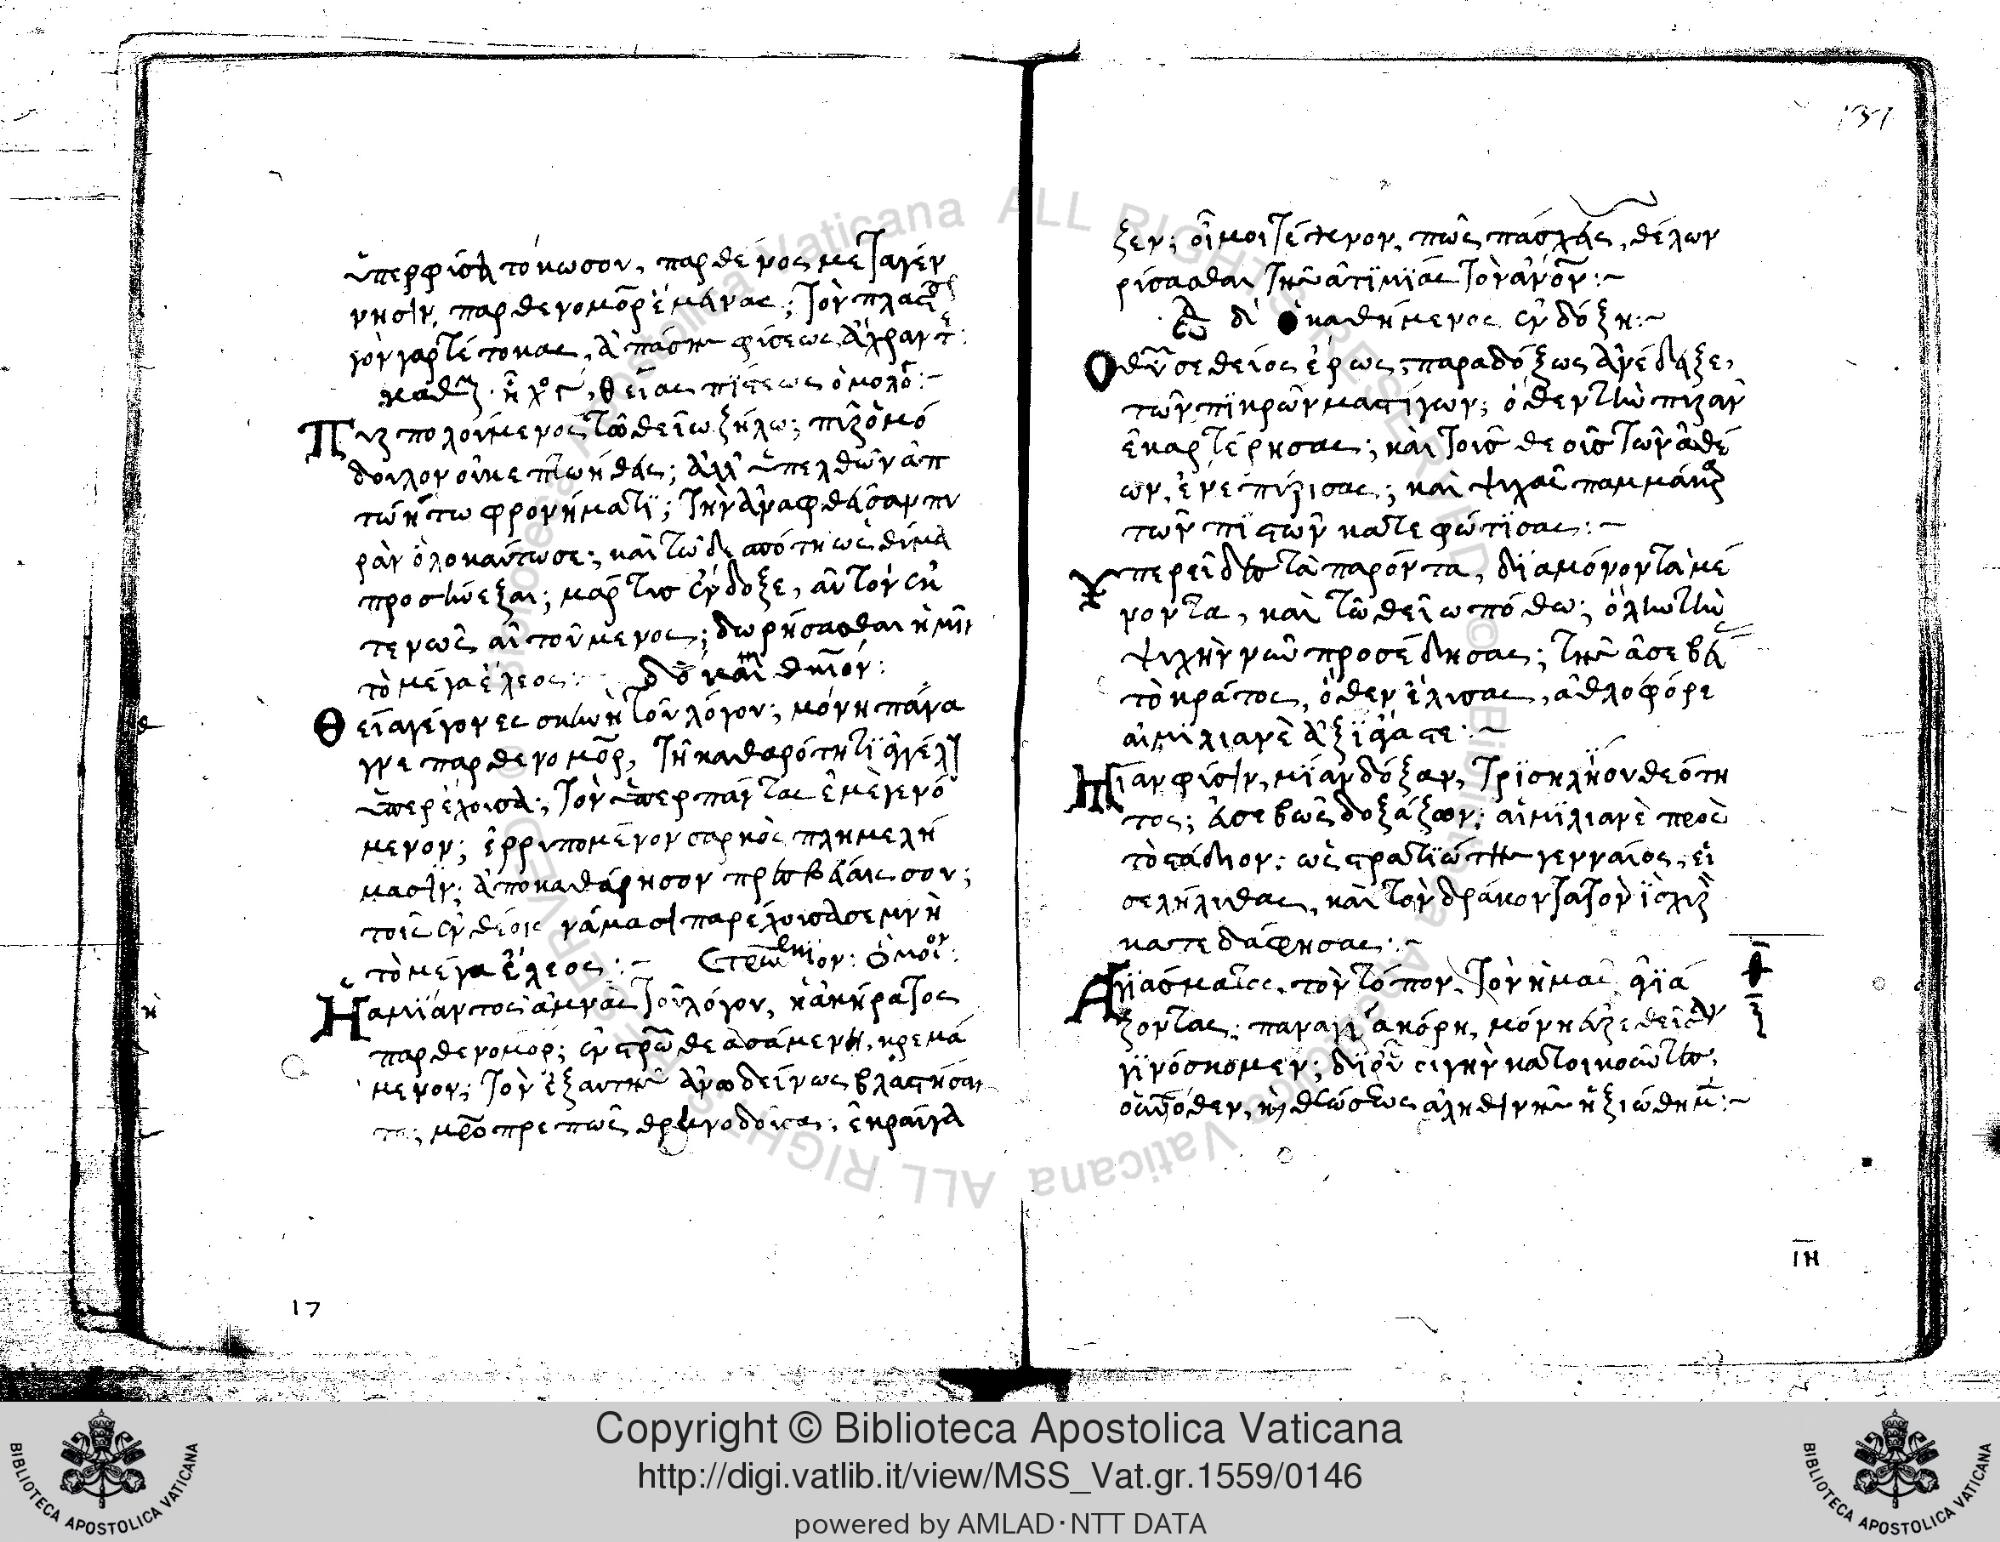 ὑπερφυσῆ τόκω σου, παρθένος μετὰ γέν
νησιν, παρθενομῆρ ἔμεινας; τὸν πλασ
γὸν γὰρ τέτοκας, ἁπάσης φύσεως ἄχραντε:
καθ ἦχος θείας πίστεως ὁμολο:~
Πυρπολούμενος τῶ θείω ζήλω; πῦρ ὁμό
δουλον οὐκ ἐπτωήθης; ἀλλ' ὑπελθὼν ἀπ
τωήτω φρονήματι; τὴν ἀναφθεῖσαν πυ
ρὰν ὁλοκαύτωσε; καὶ τῶ δεσπότη ὡς θύμα
προσήνεξαι; μάρτυς ἔνδοξε, αὐτὸν ἐκ
τενῶς αἰτούμενος; δωρήσασθαι ἡμῖν
τὸ μέγα ἔλεος:
Θεία γέγονες σκηνὴ τοῦ λόγου; μόνη πάνα
γνε παρθενομῆρ, τῆ καθαρότητι ἀγγέλων
ὑπερέχουσα; τὸν ὑπὲρ πάντας ἐμὲ γενό
μενον; ἐρρυπομένον σαρκὸς πλημμελή
μασιν; ἀποκαθάρησον πρεσβείαις σου;
τοῖς ἐνθέοις νάμασι παρέχουσα σεμνὴ
τὸ μέγα ἔλεος:~ Σταυροθεοτοκίον: Ὅμοιον:
Ἡ ἀμίαντος ἀμνὰς τοῦ λόγου, ἡ ἀκήρατος
παρθενομήρ; ἐν σταυρῶ θεασαμένη, κρεμά
μενον; τὸν ἐξ αὐτῆς ἀνωδείνως βλαστήσαν
τα; μητροπρεπῶς θρηνοδοῦσα; ἐκραύγα
ζεν; οἴμοι τέκνον, πῶς πάσχεις, θέλων
ρύσασθαι τῆς ἀτιμίας τὸν ἄνθρωπον:~
ὁ καθήμενος ἐν δόξη:~
Ὁ θεῦσε θεῖος ἔρως; παραδόξως ἀνέδειξε,
τῶν πικρῶν μαστίγων; ὅθεν τὴν πυρὰν
ἐκαρτέρησας; καὶ τοὺς θεοὺς τῶν ἀθέ
ων, ἐνεπύρισας; καὶ ψυχὰς παμμάκαρ
τῶν πιστῶν κατεφώτισας:~
Ὑπερεῖδες τὰ παρόντα, διὰ μόνον τὰ μέ
νοντα, καὶ τῶ θείω πόθω; ὅλην τὴν
ψυχὴν νῦν προσέδησας; τῆς ἀσεβεί
τὸ κράτος, ὅθεν ἔλυσας, ἀθλοφόρε
αἰμιλιανὲ ἀξιάγαστε:~
Μίαν φύσιν, μίαν δόξαν, τρισηλίου θεότη
τος; εὐσεβῶς δοξάζων; αἰμιλιανὲ πρὸς
τὸ στάδιον; ὡς στρατιώτης γενναῖος, εἰ
σελήλυθας, καὶ τὸν δράκοντα τὸν ἰσχυρὸν
κατεδάφησας:~
Ἁγιάσματος, τὸν τόπον, τὸν ἡμᾶς ἁγιά
ζοντας; παναγία κόρη, μόνη
γινόσκομεν; δι' οὗ σιγὴν κατοικοῦντες,
ὅθεν, θεώσεως ἀληθινῆς ἠξιώθημεν:~
131
17
ιη
Copyright © Biblioteca Apostolica Vaticana
http://digi.vatlib.it/view/MSS_Vat.gr.1559/0146
powered by AMLAD·NTT DATA
BIBLIOTECA APOSTOLICA VATICANA
BIBLIOTECA APOSTOLICA VATICANA